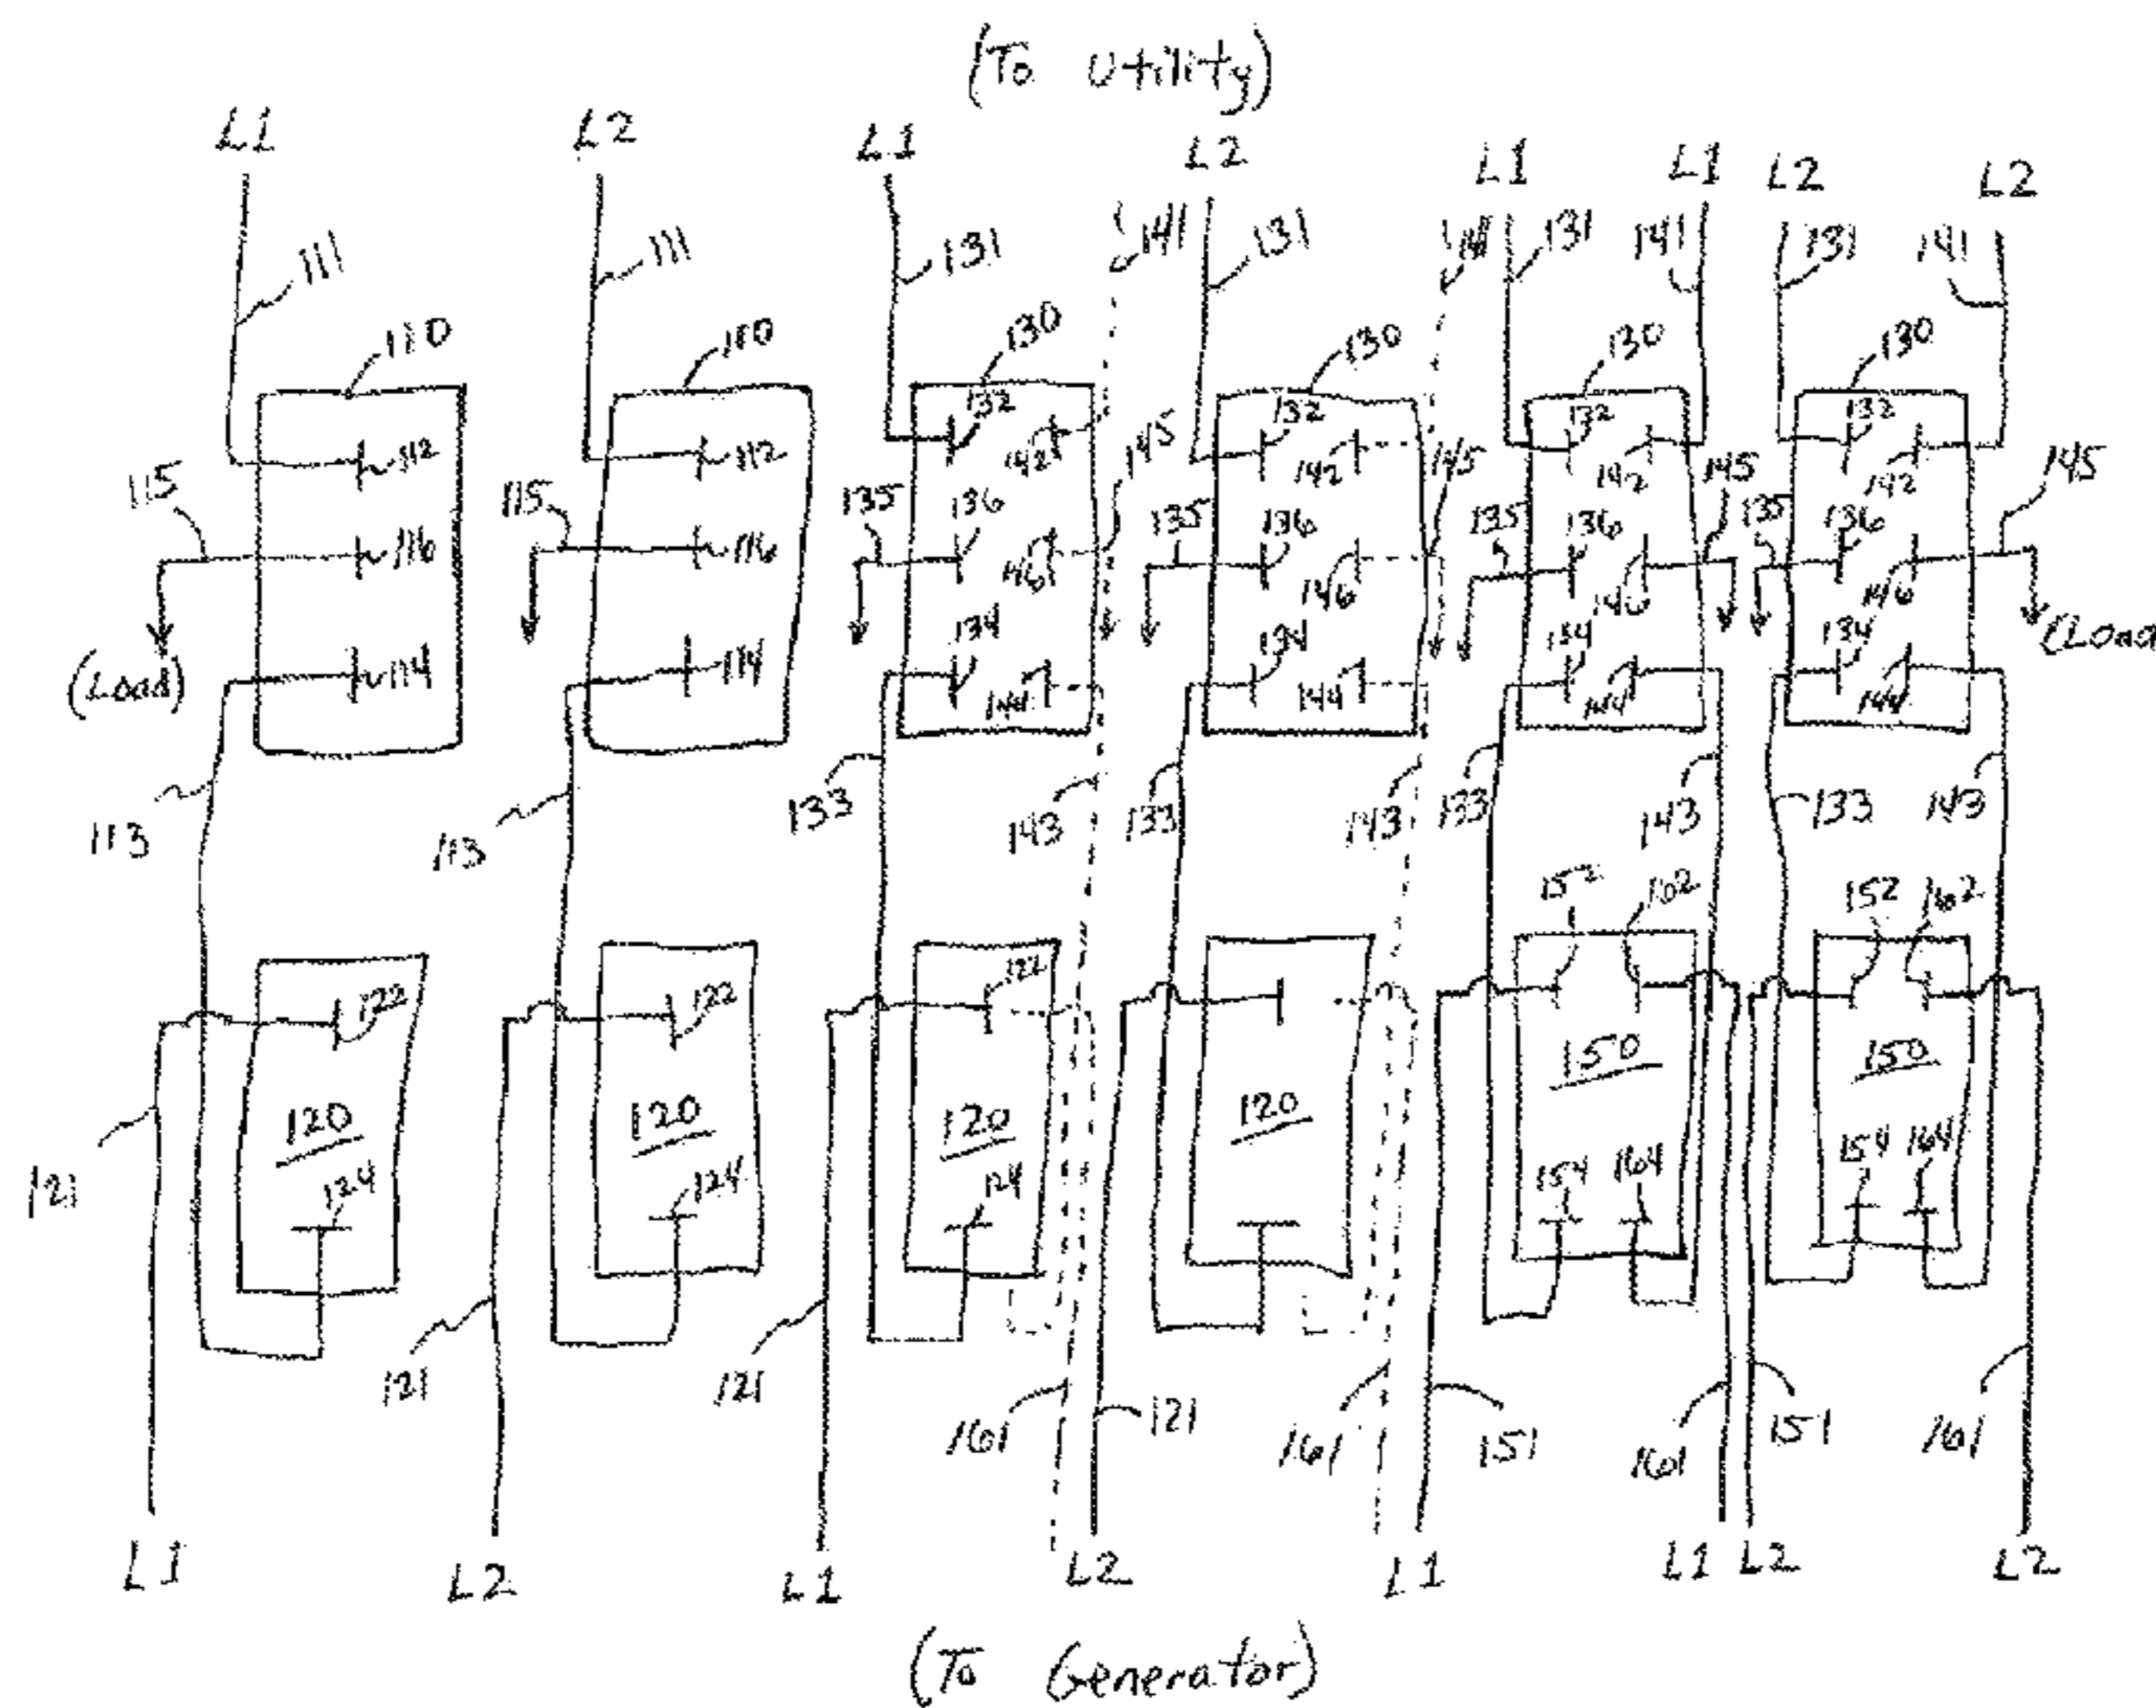 (To Utility)
L1 L2 L1 L2 L1 L1 L2 L2
111 111 131 141 131 141 131 141 131 141
110 110 130 130 130 130
132 132 132 132
112 112 142 142 142 142
115 115 135 136 145 135 136 145 135 136 145 135 136 145
116 116 146 146 146 146
134 134 134 134
(Load) 114 114 144 144 144 144 (Load
113 113 133 143 133 143 133 143 133 143
152 162 152 162
122 122 122
120 120 120 120 150 150
124 124 124 154 164 154 164
121 121 121 161 121 161 151 161 151 161
L1 L2 L1 L2 L1 L1 L2 L2
(To Generator)